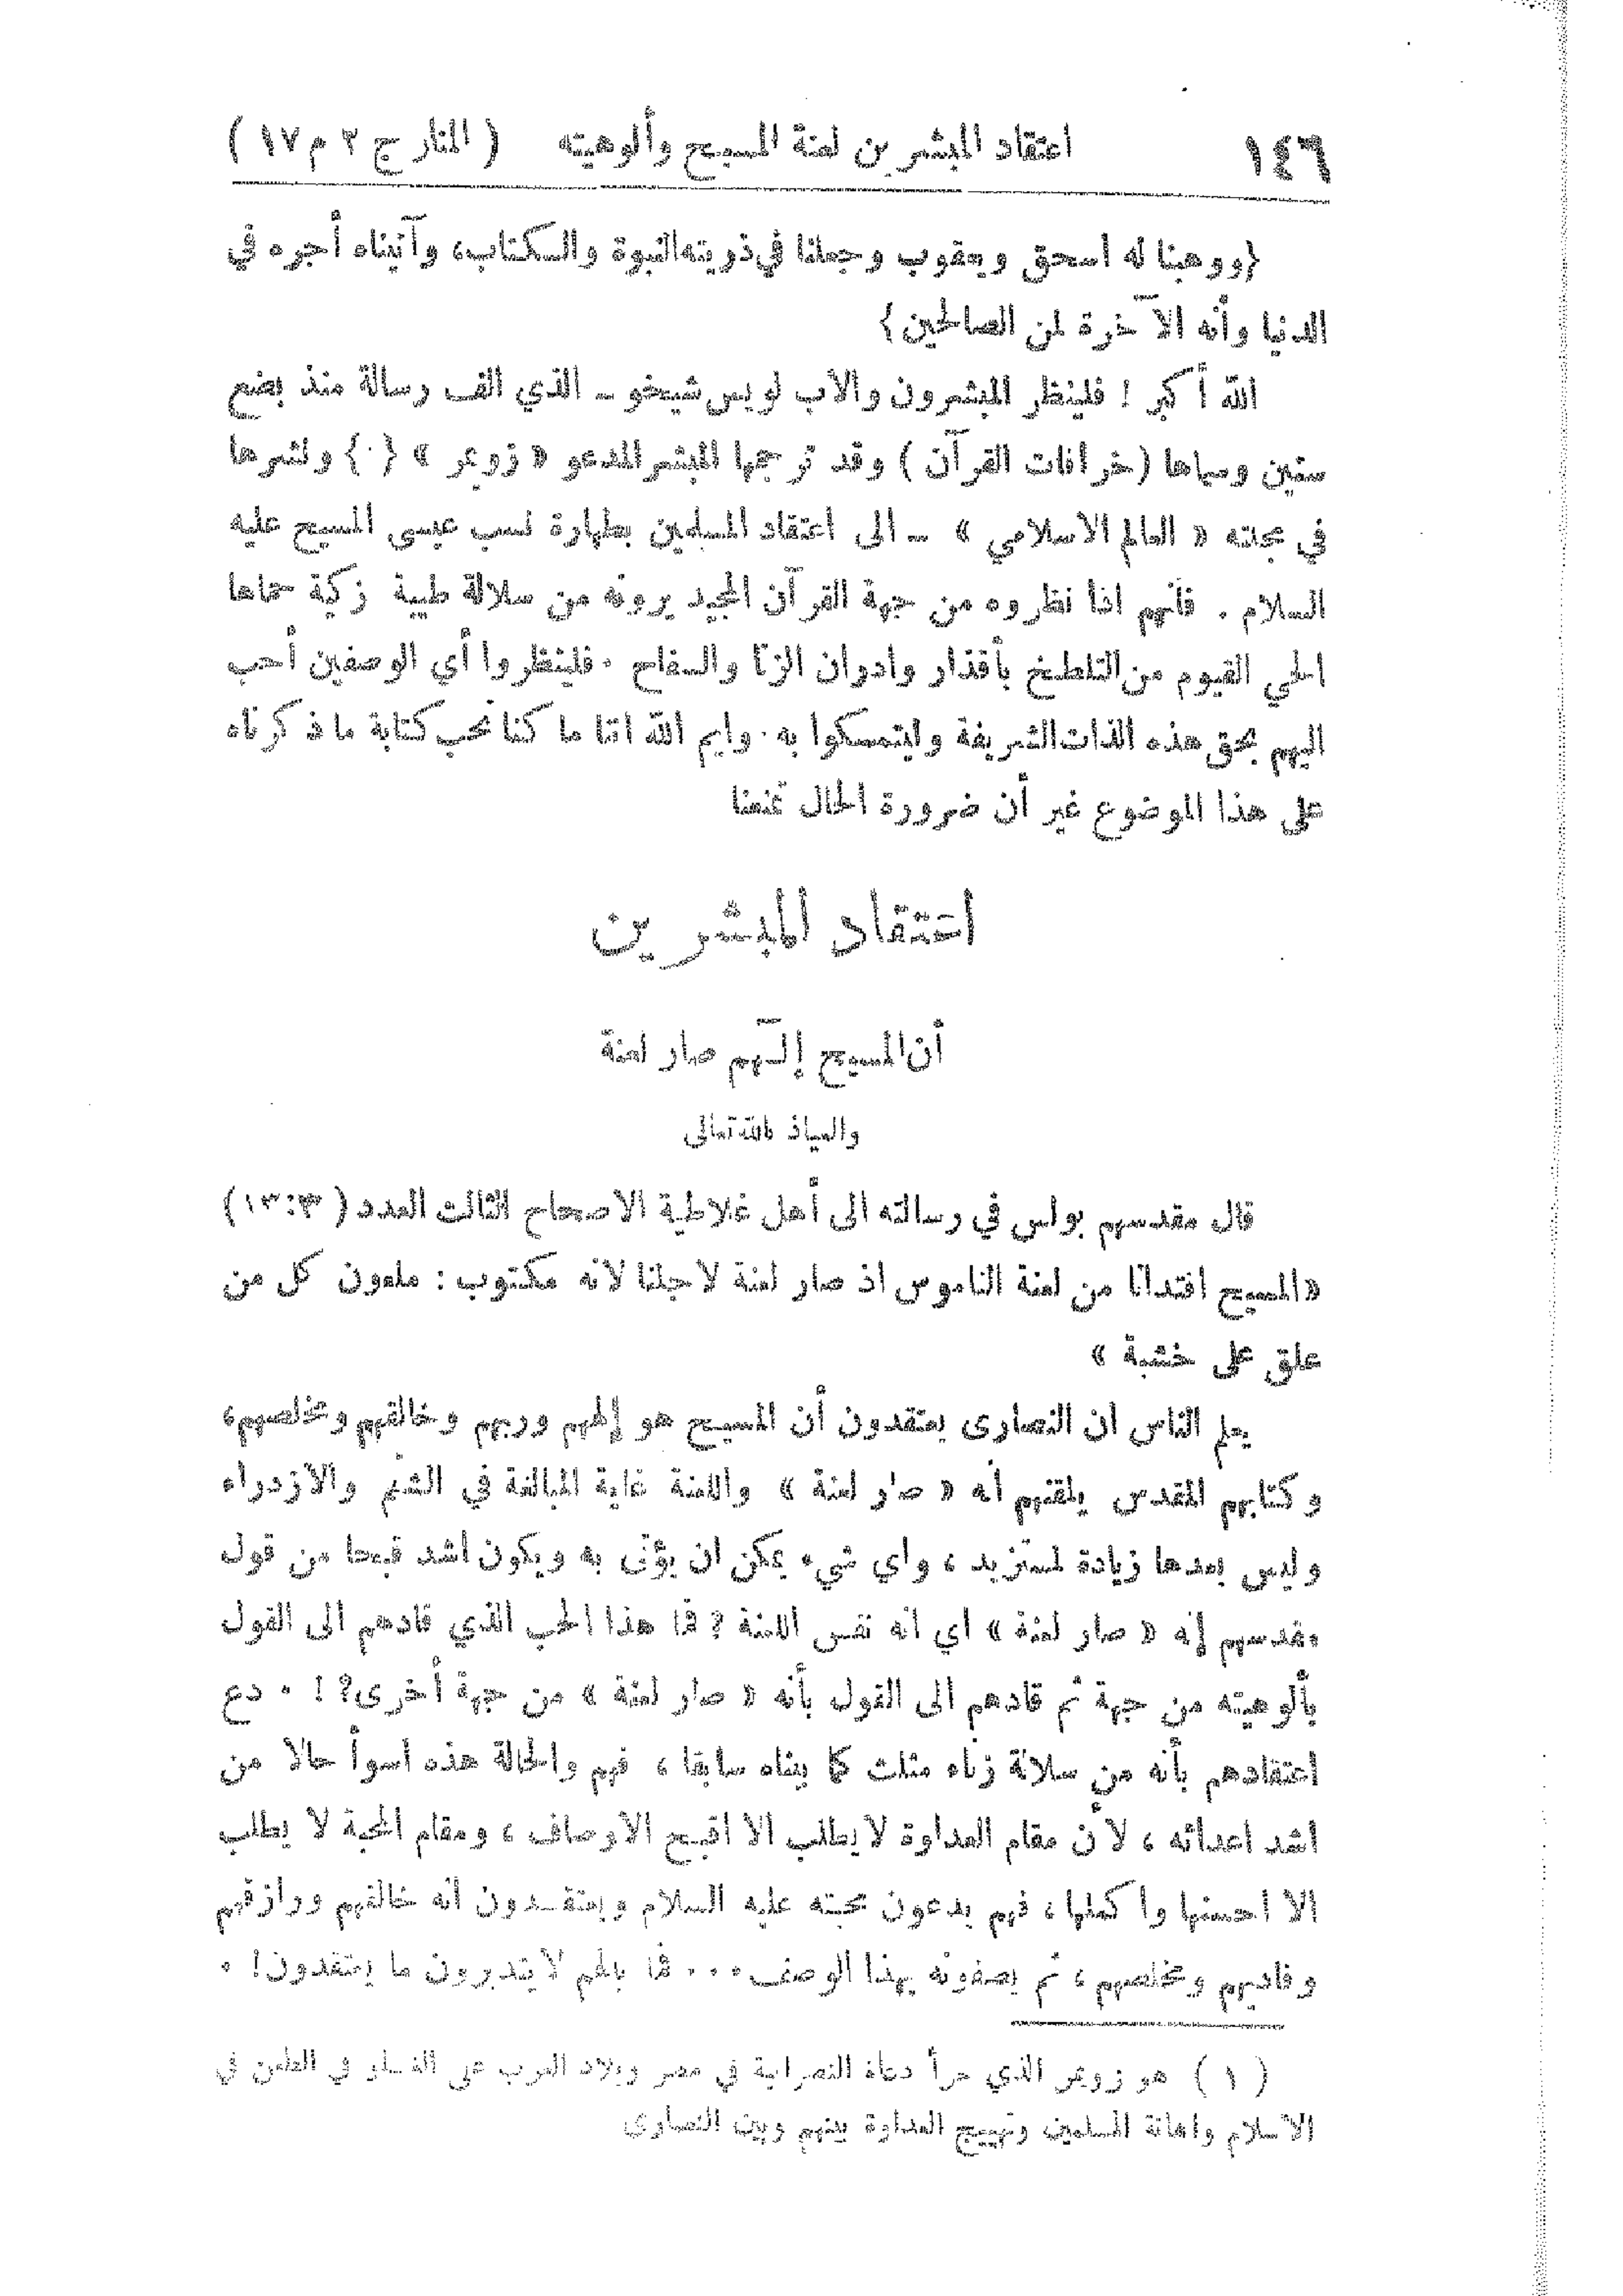 ١٤٦ اعتقاد المبشرين لعنة المسيح وألوهيته ( المنار ج ٢ م ١٧ )
{ووهبنا له اسحق ويعقوب وجعلنا في ذريته النبوة والكتاب، وآتيناه أجره في
الدنيا وأنه الآخرة لمن الصالحين}
الله أكبر ! فلينظر المبشرون والأب لويس شيخو ــ الذي الف رسالة منذ بضع
سنين وسماها (خرافات القرآن ) وقد ترجمها المبشر المدعو « زويمر » {٠} ونشرها
في مجلته « العالم الاسلامي » ــ الى اعتقاد المسلمين بطهارة نسب عيسى المسيح عليه
السلام . فانهم اذا نظروه من جهة القرآن المجيد يرونه من سلالة طيبة زكية حماها
الحي القيوم من التلطخ بأقذار وادران الزنا والسفاح . فلينظروا أي الوصفين أحب
اليهم بحق هذه الذات الشريفة وليتمسكوا به . وايم الله اننا ما كنا نحب كتابة ما ذكرناه
على هذا الموضوع غير أن ضرورة الحال
اعتقاد المبشرين
أن المسيح إلـٓهم صار لعنة
والعياذ بالله تعالى
قال مقدسهم بولس في رسالته الى أهل غلاطية الاصحاح الثالث العدد ( ١٣:٣)
«المسيح افتدانا من لعنة الناموس اذ صار لعنة لاجلنا لانه مكتوب : ملعون كل من
علق على خشبة »
يعلم الناس ان النصارى يعتقدون أن المسيح هو إلههم وربهم وخالقهم ومخلصهم،
وكتابهم المقدس يلقنهم انه « صار لعنة » واللعنة غاية المبالغة في الشتم والازدراء
وليس بعدها زيادة لمستزيد ، واي شيء يمكن ان يؤتى به ويكون اشد قبحا من قول
مقدسهم إنه « صار لعنة » اي انه نفس اللعنة ? فما هذا الحب الذي قادهم الى القول
بألوهيته من جهة ثم قادهم الى القول بأنه « صار لعنة » من جهة أخرى?! . دع
اعتقادهم بأنه من سلالة زناه مثلث كما بيناه سابقا ، فهم والحالة هذه اسوأ حالا من
اشد اعدائه ، لأن مقام العداوة لا يطلب الا اقبح الاوصاف ، ومقام المحبة لا يطلب
الا احسنها واكملها ، فهم يدعون محبته عليه السلام ويعتقـدون أنه خالقهم ورازقهم
وفاديهم ومخلصهم ، ثم يصفونه بهذا الوصف . . . فما بالهم لا يتدبرون ما يعتقدون! .
( ١ ) هو زويمر الذي جرأ دعاة النصرانية في مصر وبلاد العرب على الغـلو في الطعن في
الاسلام واهانة المسلمين وتهييج العداوة بينهم وبين النصارى